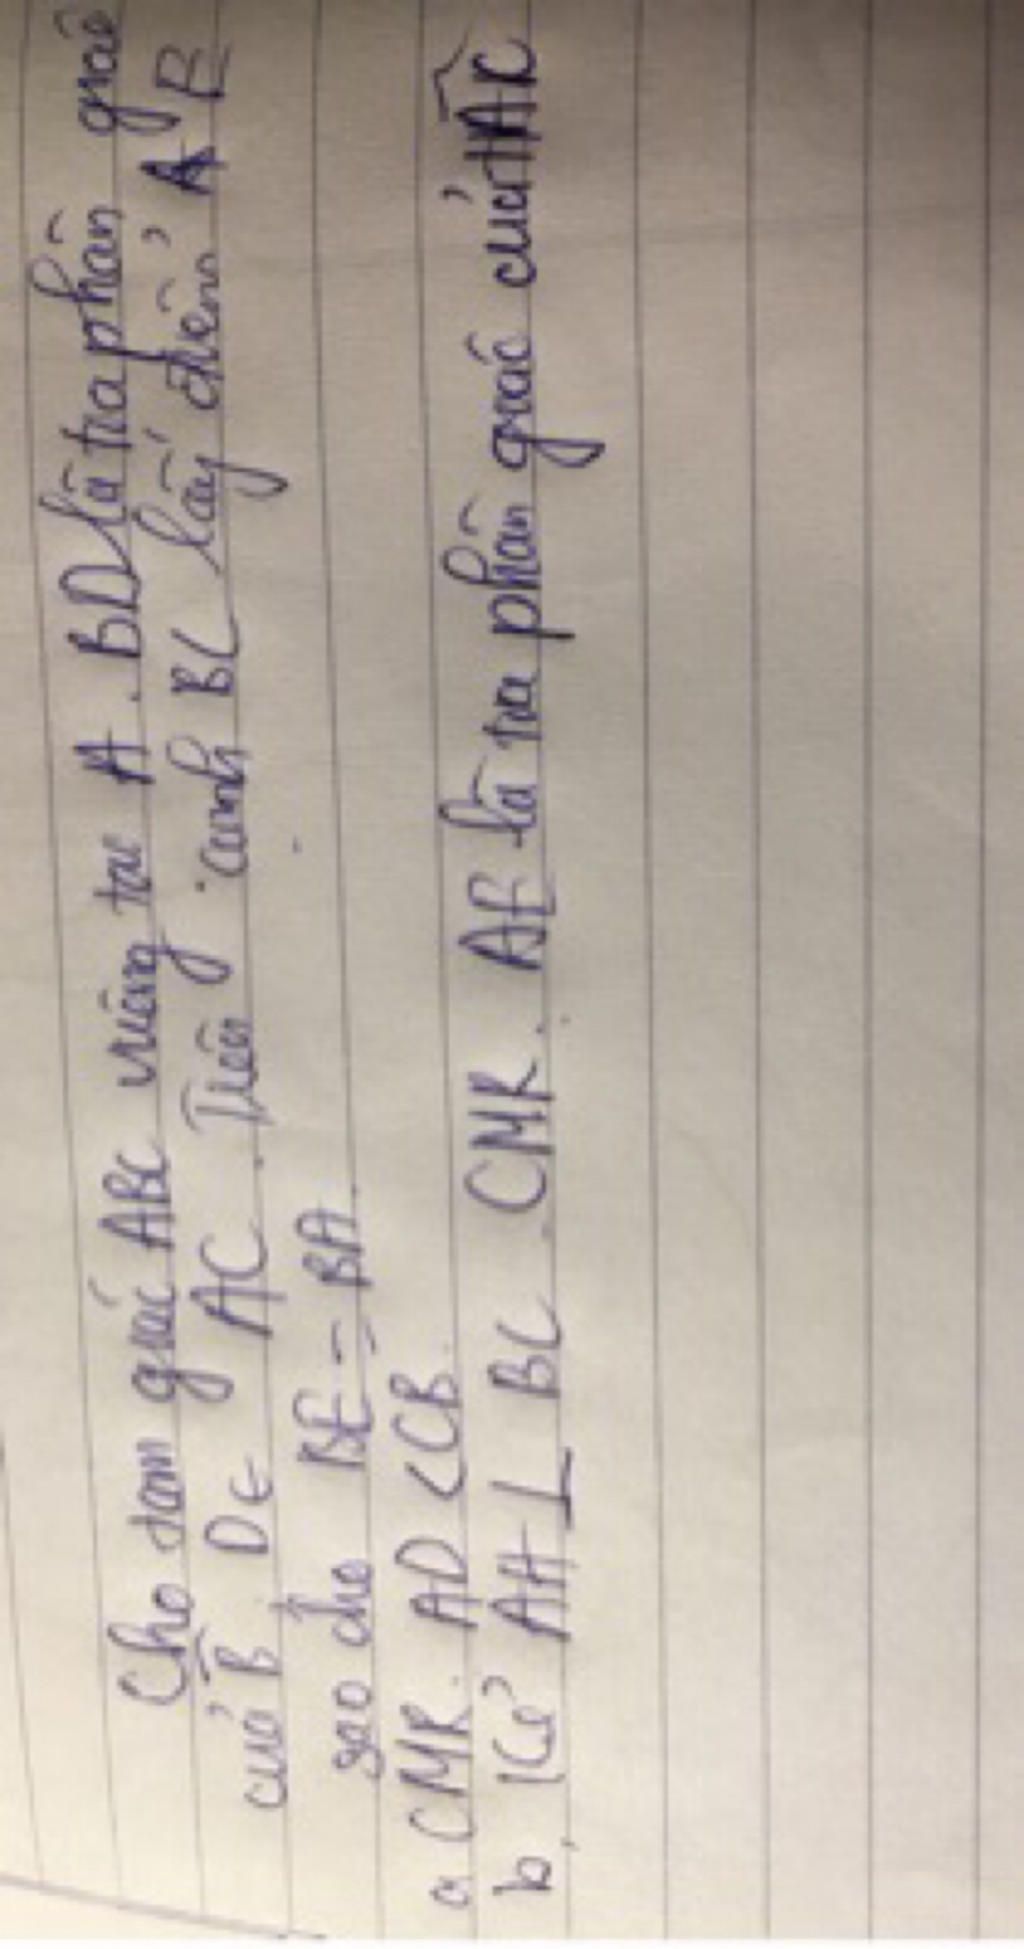 Cho tam giác ABC vuông tại A. BD là tia phân giác
của B̂. D ∈ AC. Trên cạnh BC lấy điểm E
sao cho BE = BA
a CMR. AD < CB.
b, Kẻ AH ⊥ BC. CMR. AE là tia phân giác của HAC